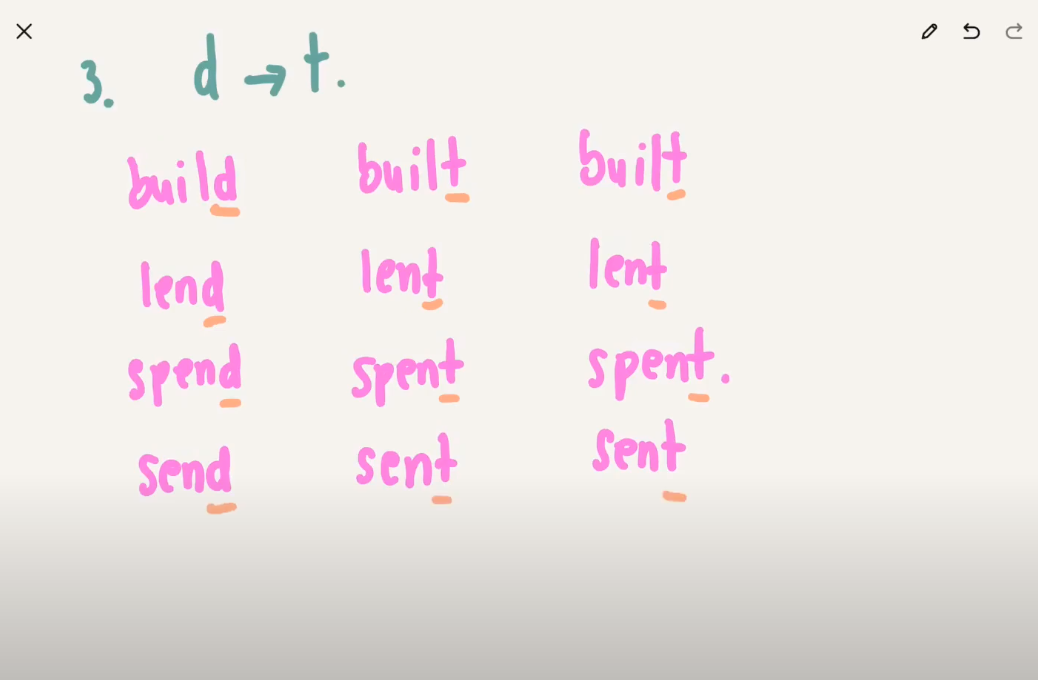 3. d → t.
build built built
lend lent lent
spend spent spent.
send sent sent